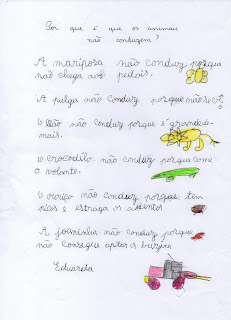 Por que é que os animais
não conduzem?
A mariposa não conduz porque
não chega aos pedais.
A pulga não conduz porque não se vê
O leão não conduz porque é grande de-
mais.
O crocodilo não conduz porque come
o volante.
O ouriço não conduz porque tem
picos e estraga os assentos
A joaninha não conduz porque
não consegue apitar a buzina
Eduarda